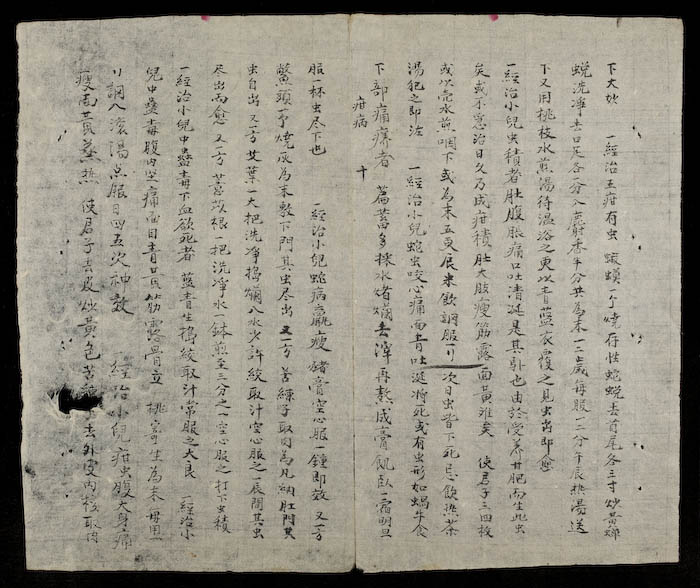 下大妙 一經治五疳有虫 蝦蟆一个燒存性蛇蛻去首尾各三寸炒黃蟬
蛻洗淨去口足各一分入麝香半分共為末一二歲每服一二分午辰熱湯送
下又用桃枝水煎湯待溫浴之更以青藍衣覆之見虫出即愈
一經治小兒虫積者肚腹脹痛口吐清涎是其馸也由於受養甘肥而生此虫
矣或不急治日久乃成疳積肚大肢瘦筋露面黃难矣 使君子三四枚
或以壳水煎咽下或為末五更辰米飲調服刂次日虫皆下死忌飲热茶
湯犯之即泄 一經治小兒蛇虫咬心痛面青吐涎將死或有虫形如蝸牛食
下部痛癢者 萹蓄多採水煮烟去滓再熬成膏飢臥一宿明旦
疳病 十
服一杯虫尽下也 一經治小兒蛇病羸瘦 猪膏空心服一鍾即效 又一方
鱉頭一个燒灰為末敷下門其虫尽出 又一方 苦練子取肉為凡納肛門其
虫自出 又一方 艾葉一大把洗淨搗爛入水少許絞取汁空心服之一展間其虫
尽出而愈 又一方 苦練根一把洗淨水一鉢煎至三分之一空心服之打下虫積
一經治小兒中蠱毒下血欲死者 藍青生搗絞取汁常服之大良 一經治小
兒中蠱毒腹内坚痛面目青黃筋露骨立 桃寄生為末毋用一
刂調入滾湯点服日四五次神效 一經治小兒疳虫腹大身痛
瘦面黃蒸热 使君子去皮炒黃色苦 去外皮内核取肉